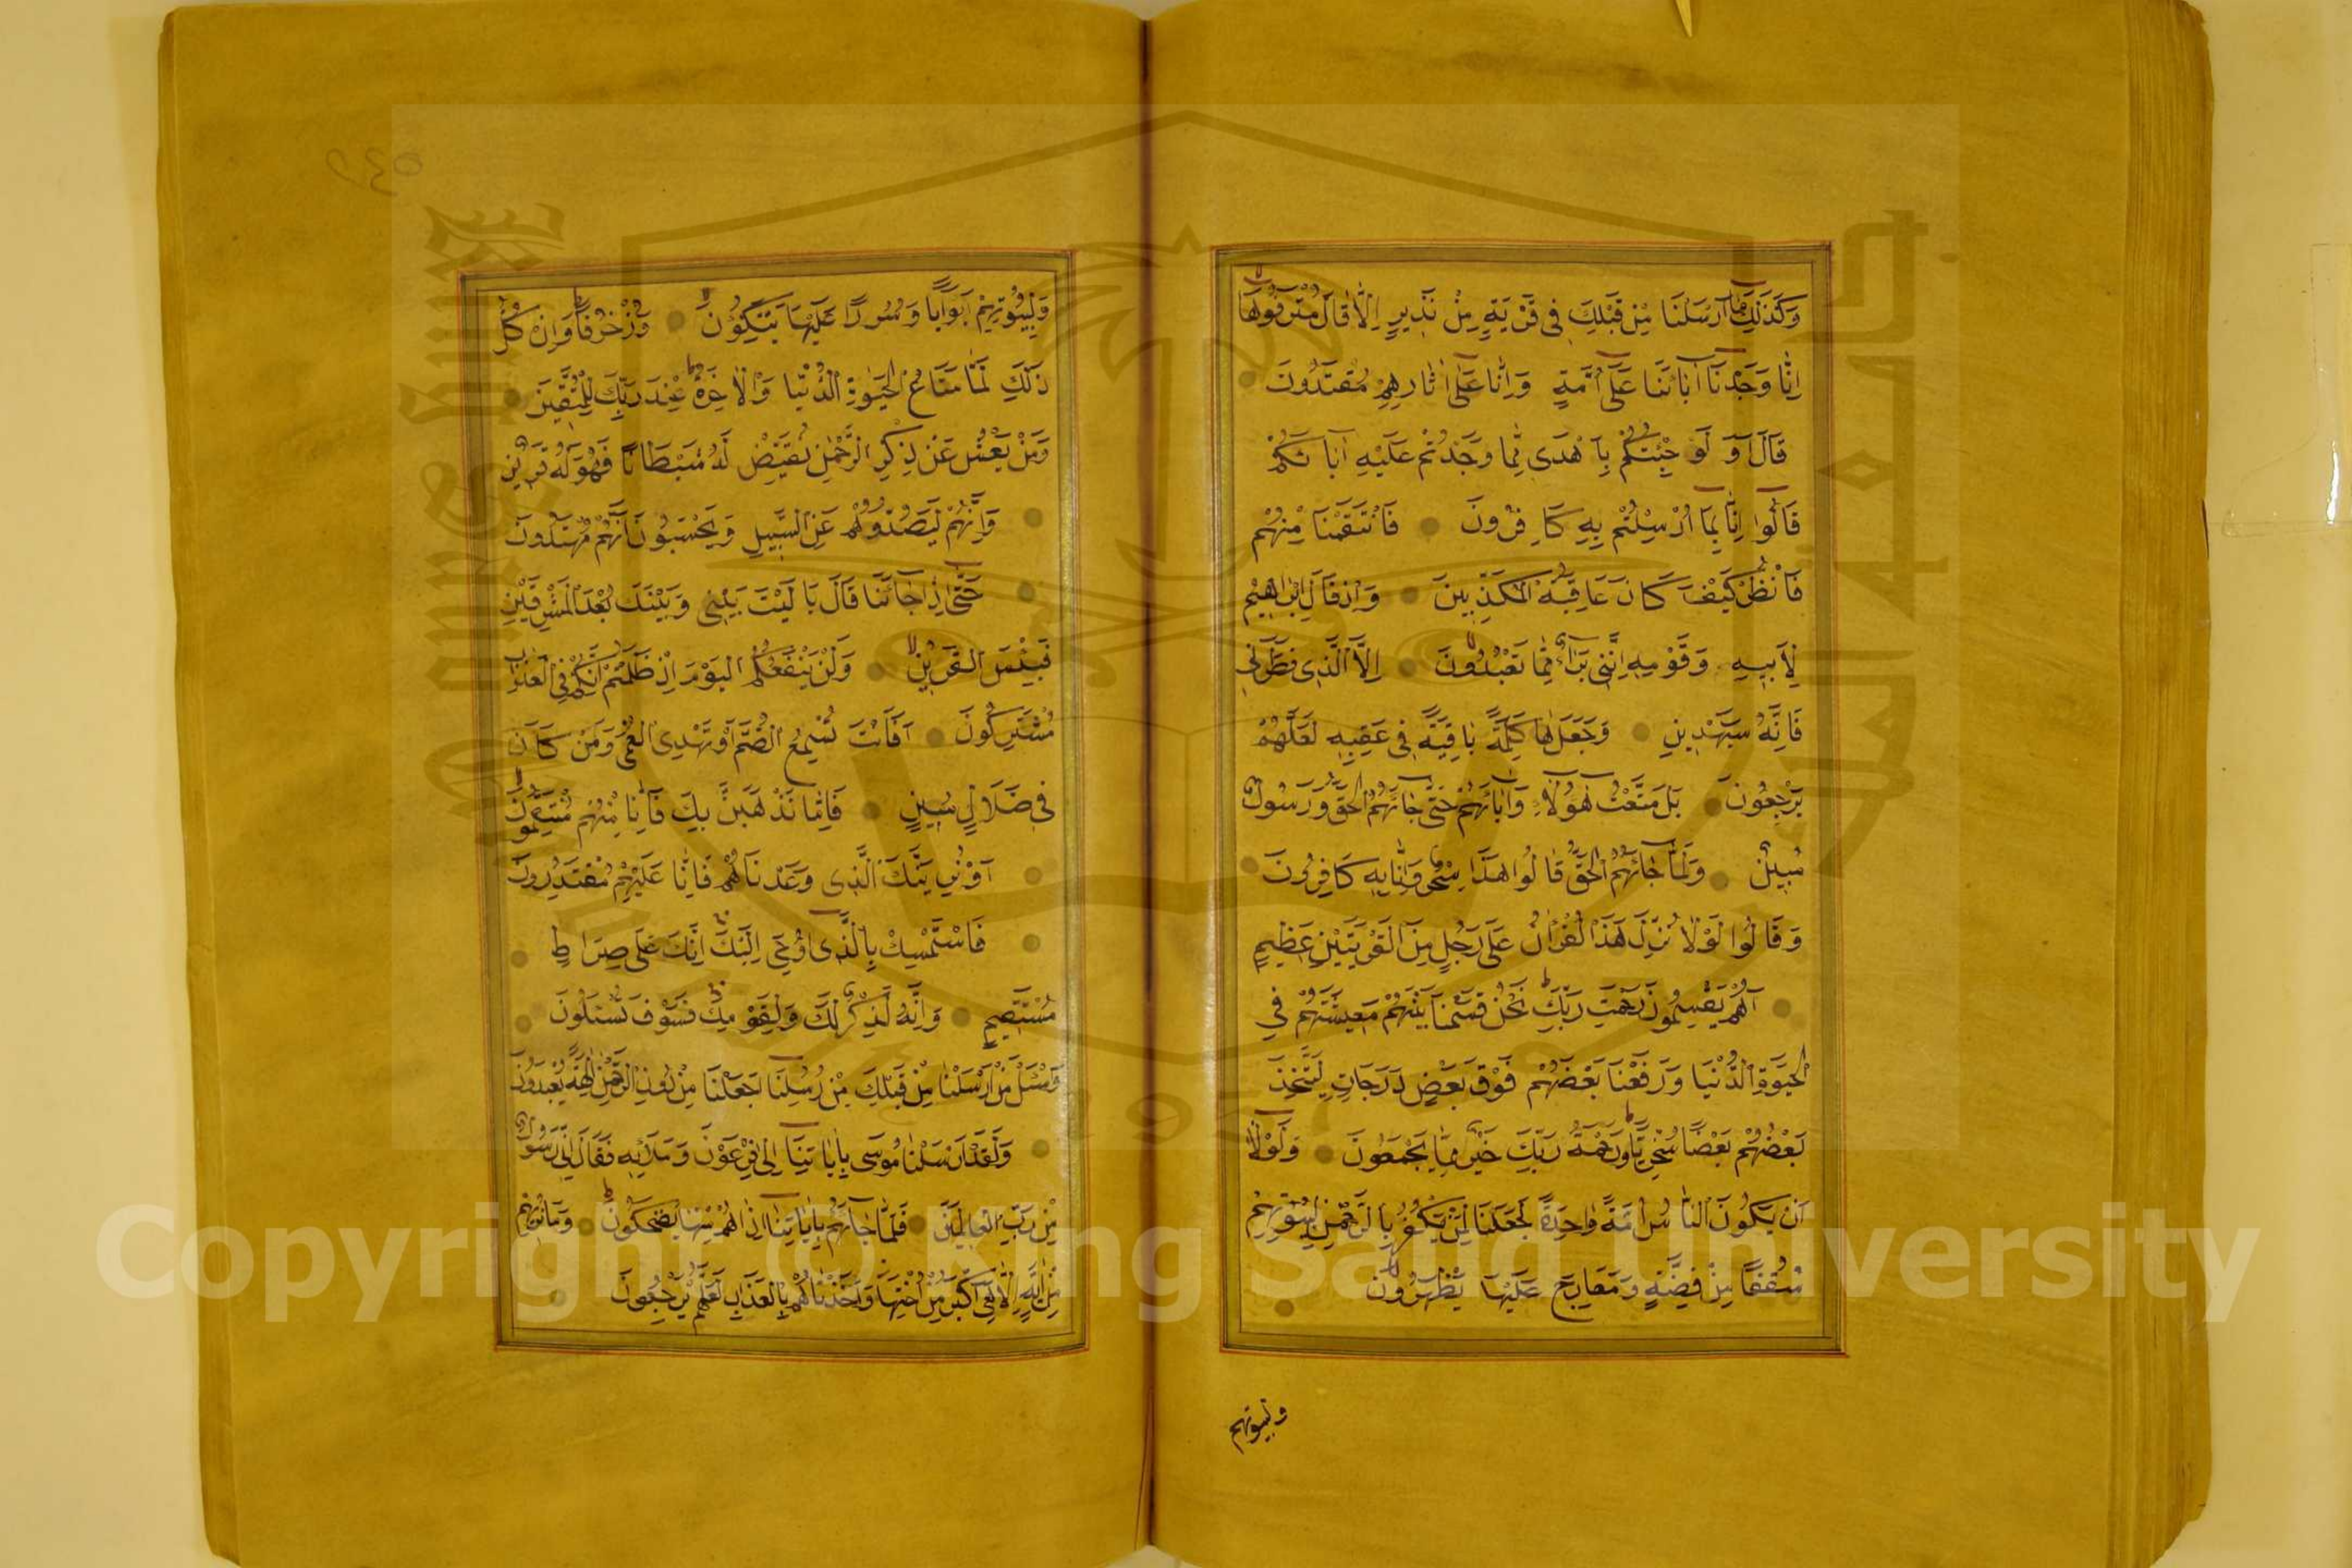 وَكَذٰلِكَ مَا اَرْسَلْنَا مِنْ قَبْلِكَ فِى قَرْيَةٍ مِنْ نَذِيرٍ اِلَّا قَالَ مُتْرَفُوهَا
اِنَّا وَجَدْنَا اٰبَائَنَا عَلٰى اُمَّةٍ وَاِنَّا عَلٰى اٰثَارِهِمْ مُقْتَدُونَ
قَالَ اَوَ لَوْ جِئْتُكُمْ بِاَهْدٰى مِمَّا وَجَدْتُمْ عَلَيْهِ اٰبَائَكُمْ
قَالُوا اِنَّا بِمَا اُرْسِلْتُمْ بِهِ كَافِرُونَ فَانْتَقَمْنَا مِنْهُمْ
فَانْظُرْ كَيْفَ كَانَ عَاقِبَةُ الْمُكَذِّبِينَ وَاِذْ قَالَ اِبْرٰاهِيْمُ
لِاَبِيهِ وَقَوْمِهِ اِنَّنِى بَرَاءٌ مِمَّا تَعْبُدُونَ اِلَّا الَّذِى فَطَرَنِى
فَاِنَّهُ سَيَهْدِينِ وَجَعَلَهَا كَلِمَةً بَاقِيَةً فِى عَقِبِهِ لَعَلَّهُمْ
يَرْجِعُونَ بَلْ مَتَّعْتُ هٰؤُلَاءِ وَاٰبَائَهُمْ حَتّٰى جَائَهُمُ الْحَقُّ وَرَسُولٌ
مُبِينٌ وَلَمَّا جَائَهُمُ الْحَقُّ قَالُوا هٰذَا سِحْرٌ وَاِنَّا بِهِ كَافِرُونَ
وَقَالُوا لَوْلَا نُزِّلَ هٰذَا الْقُرْاٰنُ عَلٰى رَجُلٍ مِنَ الْقَرْيَتَيْنِ عَظِيمٍ
اَهُمْ يَقْسِمُونَ رَحْمَتَ رَبِّكَ نَحْنُ قَسَمْنَا بَيْنَهُمْ مَعِيشَتَهُمْ فِى
الْحَيٰوةِ الدُّنْيَا وَرَفَعْنَا بَعْضَهُمْ فَوْقَ بَعْضٍ دَرَجَاتٍ لِيَتَّخِذَ
بَعْضُهُمْ بَعْضًا سُخْرِيًّا وَرَحْمَةُ رَبِّكَ خَيْرٌ مِمَّا يَجْمَعُونَ وَلَوْلَا
اَنْ يَكُونَ النَّاسُ اُمَّةً وَاحِدَةً لَجَعَلْنَا لِمَنْ يَكْفُرُ بِالرَّحْمٰنِ لِبُيُوتِهِمْ
سُقُفًا مِنْ فِضَّةٍ وَمَعَارِجَ عَلَيْهَا يَظْهَرُونَ
ولبيوتهم
وَلِبُيُوتِهِمْ اَبْوَابًا وَسُرُرًا عَلَيْهَا يَتَّكِؤُنَ وَزُخْرُفًا وَاِنْ كُلُّ
ذٰلِكَ لَمَّا مَتَاعُ الْحَيٰوةِ الدُّنْيَا وَالْاٰخِرَةُ عِنْدَ رَبِّكَ لِلْمُتَّقِينَ
وَمَنْ يَعْشُ عَنْ ذِكْرِ الرَّحْمٰنِ نُقَيِّضْ لَهُ شَيْطَانًا فَهُوَ لَهُ قَرِينٌ
وَاِنَّهُمْ لَيَصُدُّونَهُمْ عَنِ السَّبِيلِ وَيَحْسَبُونَ اَنَّهُمْ مُهْتَدُونَ
حَتّٰى اِذَا جَائَنَا قَالَ يَا لَيْتَ بَيْنِى وَبَيْنَكَ بُعْدَ الْمَشْرِقَيْنِ
فَبِئْسَ الْقَرِينُ وَلَنْ يَنْفَعَكُمُ الْيَوْمَ اِذْ ظَلَمْتُمْ اَنَّكُمْ فِى الْعَذَابِ
مُشْتَرِكُونَ اَفَاَنْتَ تُسْمِعُ الصُّمَّ اَوْ تَهْدِى الْعُمْىَ وَمَنْ كَانَ
فِى ضَلَالٍ مُبِينٍ فَاِمَّا نَذْهَبَنَّ بِكَ فَاِنَّا مِنْهُمْ مُنْتَقِمُونَ
اَوْ نُرِيَنَّكَ الَّذِى وَعَدْنَاهُمْ فَاِنَّا عَلَيْهِمْ مُقْتَدِرُونَ
فَاسْتَمْسِكْ بِالَّذِى اُوحِىَ اِلَيْكَ اِنَّكَ عَلٰى صِرَاطٍ
مُسْتَقِيمٍ وَاِنَّهُ لَذِكْرٌ لَكَ وَلِقَوْمِكَ فَسَوْفَ تُسْئَلُونَ
وَسْئَلْ مَنْ اَرْسَلْنَا مِنْ قَبْلِكَ مِنْ رُسُلِنَا اَجَعَلْنَا مِنْ دُونِ الرَّحْمٰنِ اٰلِهَةً يُعْبَدُونَ
وَلَقَدْ اَرْسَلْنَا مُوسٰى بِاٰيَاتِنَا اِلٰى فِرْعَوْنَ وَمَلَائِهِ فَقَالَ اِنِّى رَسُولُ
رَبِّ الْعَالَمِينَ فَلَمَّا جَائَهُمْ بِاٰيَاتِنَا اِذَا هُمْ مِنْهَا يَضْحَكُونَ وَمَا نُرِيهِمْ
مِنْ اٰيَةٍ اِلَّا هِىَ اَكْبَرُ مِنْ اُخْتِهَا وَاَخَذْنَاهُمْ بِالْعَذَابِ لَعَلَّهُمْ يَرْجِعُونَ
Copyright © King Saud University
1957